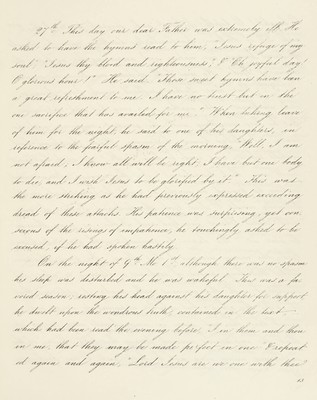 27th. This day our dear Father was extremely ill. He
asked to have the hymns read to him, "Jesus refuge of my
soul", "Jesus thy blood and righteousness", & "Oh, joyful day!
O glorious hour!" He said "Those sweet hymns have been
a great refreshment to me. I have no trust but in the
one sacrifice that has availed for me." When taking leave
of him for the night, he said to one of his daughters, in
reference to the painful spasm of the morning, "Well, I am
not afraid, I know all will be right, I have but one body
to die, and I wish Jesus to be glorified by it." This was
the more striking as he had previously expressed exceeding
dread of these attacks. His patience was surprising, yet con-
scious of the risings of impatience, he touchingly asked to be
excused, if he had spoken hastily.
On the night of 9th. Mo. 1st. although there was no spasm
his sleep was disturbed and he was wakeful. This was a fa-
vored season; resting his head against his daughter for support
he dwelt upon the wondrous truth, contained in the text—
which had been read the evening before, "I in them and thou
in me, that they may be made perfect in one." & repeat
ed again and again, "Lord Jesus are we one with thee?